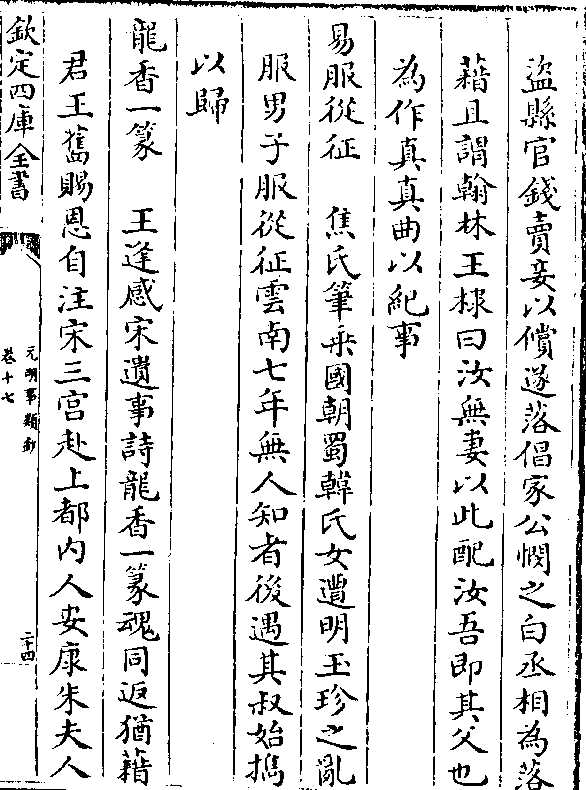 盜縣官錢賣妾以償遂落倡家公憫之白丞相為落
藉且謂翰林王棣曰汝無妻以此配汝吾即其父也
為作真真曲以紀事
易服從征　焦氏筆乗國朝蜀韓氏女遭明玉珍之亂
服男子服從征雲南七年無人知者後遇其叔始擕
以歸
龍香一篆　王逢感宋遺事詩龍香一篆魂同返猶藉
君王舊賜恩自注宋三宫赴上都内人安康朱夫人
欽定四庫全書
元明事類鈔
卷十七
二十四